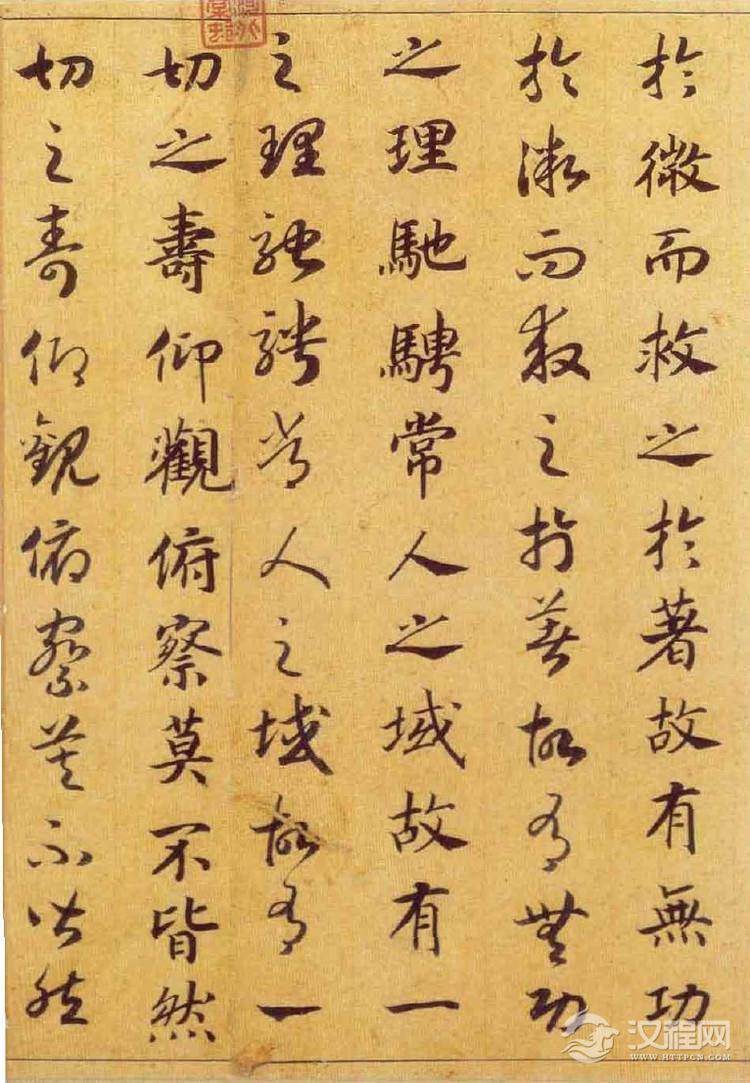 於微而救之於著故有無功
於微而救之於著故有無功
之理馳騁常人之域故有一
之理馳騁常人之域故有一
切之壽仰觀俯察莫不皆然
切之壽仰觀俯察莫不皆然
汉程网
WWW.HTTPCN.COM